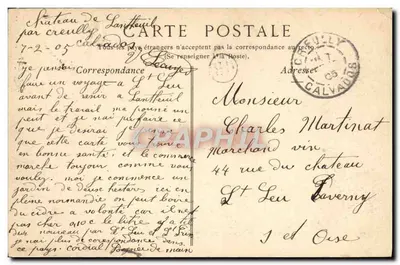 château de Lantheuil
par creully
Calvados
7-2-05
CARTE POSTALE
Tous les étrangers n'acceptent pas la correspondance au recto
(Se renseigner à la Poste).
Correspondance
Adresse
CREULLY
CALVADOS
je pensais
faire un voyage a St Leu
avant de venir a Lantheuil
mais le travail ma pousse un
peut et je nai pu faire ce
que je
que cette carte vous
en bonne santé et le commerce
marche toujours comme vous
voulez moi je commence un
jardin de deux hectares ici en
pleine normandie on peut boire
du cidre a volonté car il nest
pas cher 0,10c le litre
nouveau par St Leu et
je nai plus de corespondance dans
ce pays. cordial de main
Monsieur
Charles Martinat
Marchand vin
44 rue du chateau
St Leu Taverny
S et Oise
CPARAMA